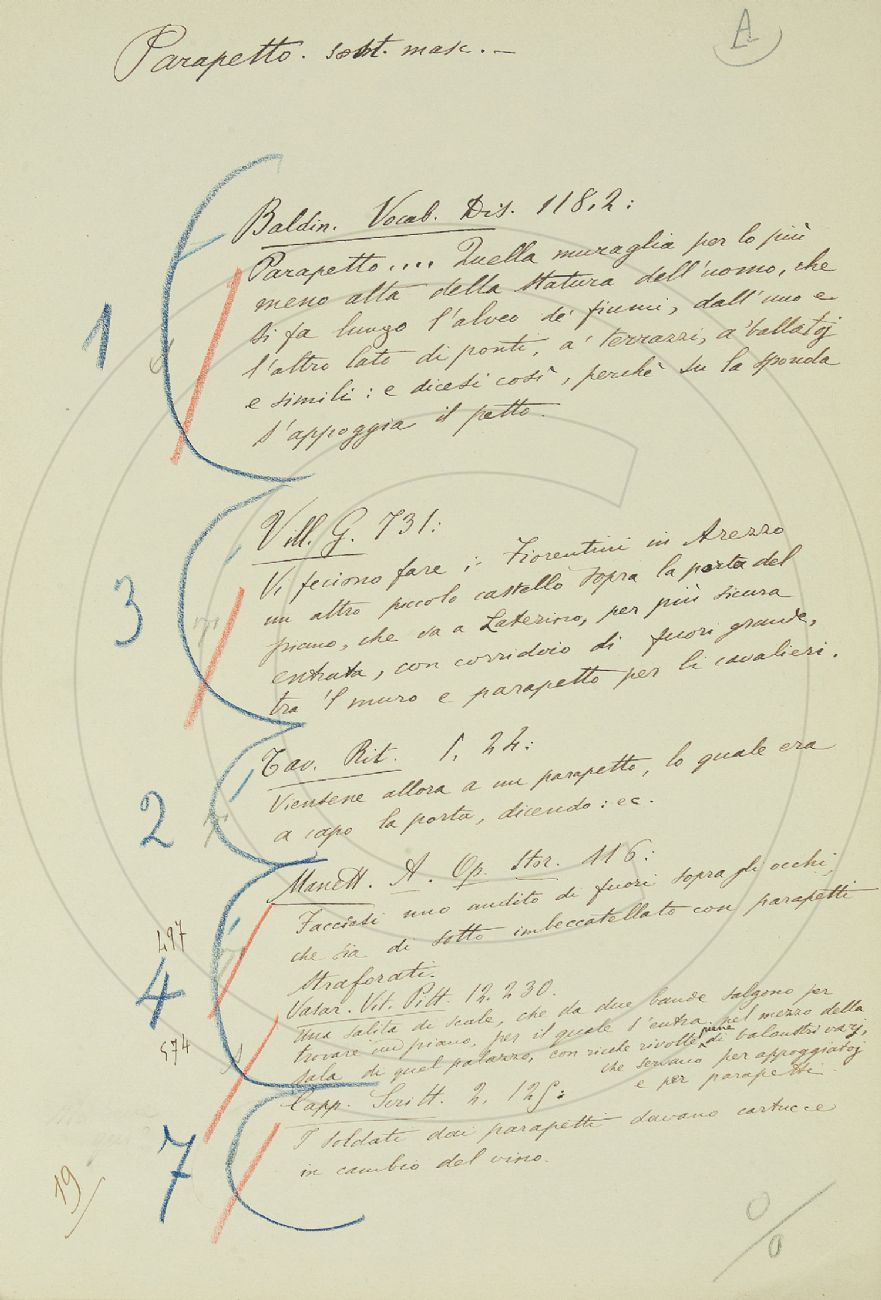 A
Parapetto. sost. masc. —
Baldin. Vocab. Dis. 118.2:
Parapetto.... Quella muraglia per lo più
meno alta della statura dell'uomo, che
si fa lungo l'alveo de' fiumi, dall'uno e
l'altro lato di ponti, a' terrazzi, a' ballatoj
e simili: e dicesi così, perchè su la sponda
s'appoggia il petto.
1
Vill. G. 731:
Vi feciono fare i Fiorentini in Arezzo
un altro piccolo castello sopra la porta del
piano, che va a Laterino, per più sicura
entrata, con corridoio di fuori grande,
tra 'l muro e parapetto per li cavalieri.
3
Tav. Rit. 1. 24:
Viensene allora a un parapetto, lo quale era
a capo la porta, dicendo: ec.
2
Manett. A. Op. stor. 116:
Facciasi uno andito di fuori sopra gli occhi,
che sia di sotto imbeccatellato con parapetti
straforati.
497
4
574
Vasar. Vit. Pitt. 12. 230.
Una salita di scale, che da due bande salgono per
trovare un piano, per il quale s'entra nel mezzo della
sala di quel palazzo, con ricche rivolte piene di balaustri varj,
che servano per appoggiatoj
e per parapetti.
Capp. Scritt. 2. 125:
I soldati dai parapetti davano cartucce
in cambio del vino.
7
19
0/0